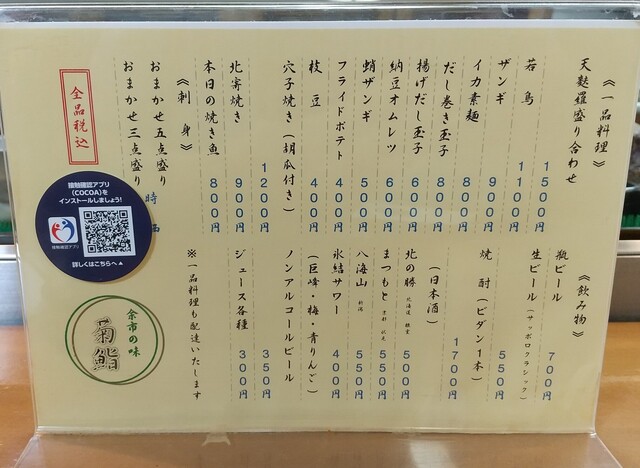 《一品料理》
天麩羅盛り合わせ 1500円
若鳥 1100円
ザンギ 900円
イカ素麺 800円
だし巻き玉子 800円
揚げだし玉子 600円
納豆オムレツ 600円
蛸ザンギ 500円
フライドポテト 400円
枝豆 400円
穴子焼き(胡瓜付き) 1200円
北寄焼き 900円
本日の焼き魚 800円
《刺身》
おまかせ五点盛り 時
おまかせ三点盛り
全品税込
《飲み物》
瓶ビール 700円
生ビール(サッポロクラシック) 550円
焼酎(ビダン1本) 1700円
(日本酒)
北の勝 北海道 根室 500円
まつもと 京都 伏見 550円
八海山 新潟 550円
氷結サワー 400円
(巨峰・梅・青りんご)
ノンアルコールビール 350円
ジュース各種 300円
※一品料理も配達いたします
接触確認アプリ
(COCOA)を
インストールしましょう!
接触確認アプリ
詳しくはこちらへ▲
余市の味
菊鮨